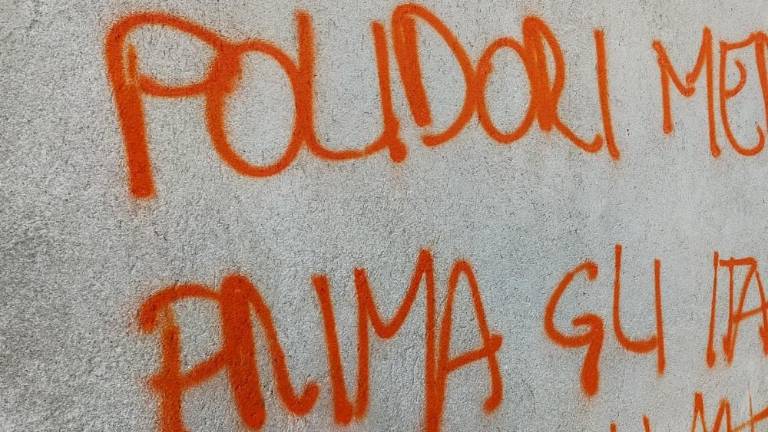 POLIDORI ME
PRIMA GLI ITA